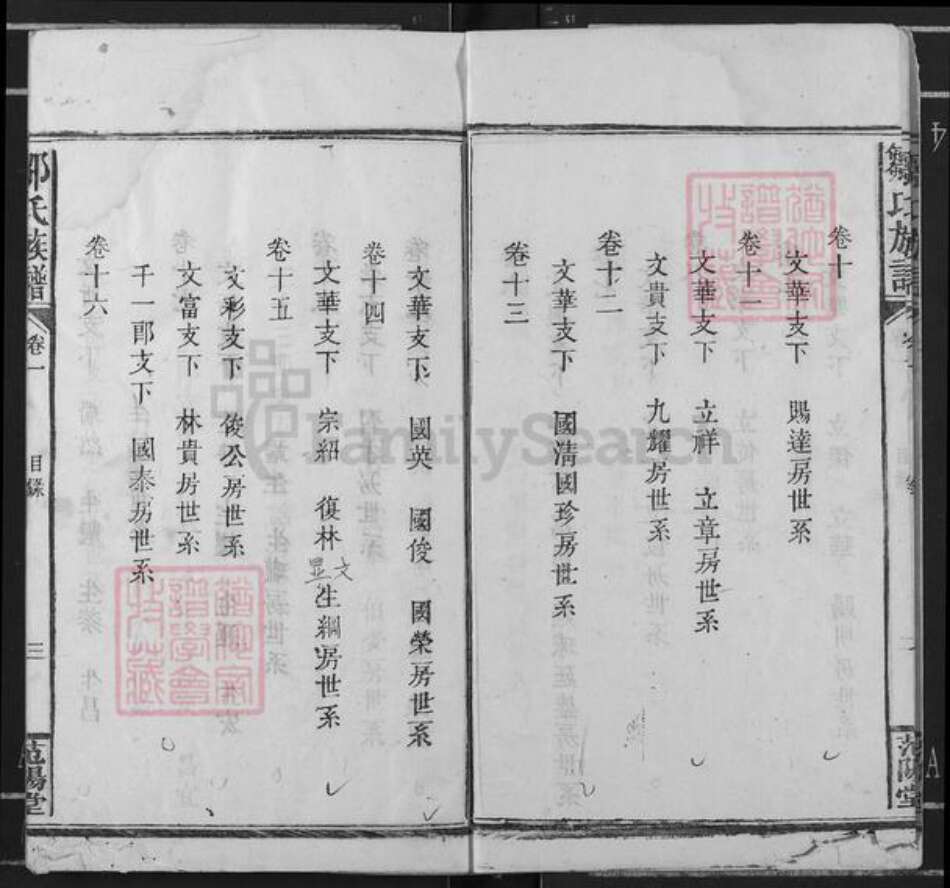 鄒氏族譜
范陽堂
卷十
文華支下　賜達房世系
卷十一
文華支下　立祥　立章房世系
文貴支下　九耀房世系
卷十二
文華支下　國清國珍房世系
卷十三
文華支下　國英　國俊　國榮房世系
卷十四
文華支下　宗紹　復林　生綱房世系
文昱
卷十五
文彩支下　俊公房世系
文富支下　林貴房世系
千一郎支下　國泰房世系
卷十六
鄒氏族譜　卷一　目錄　三　范陽堂
FamilySearch